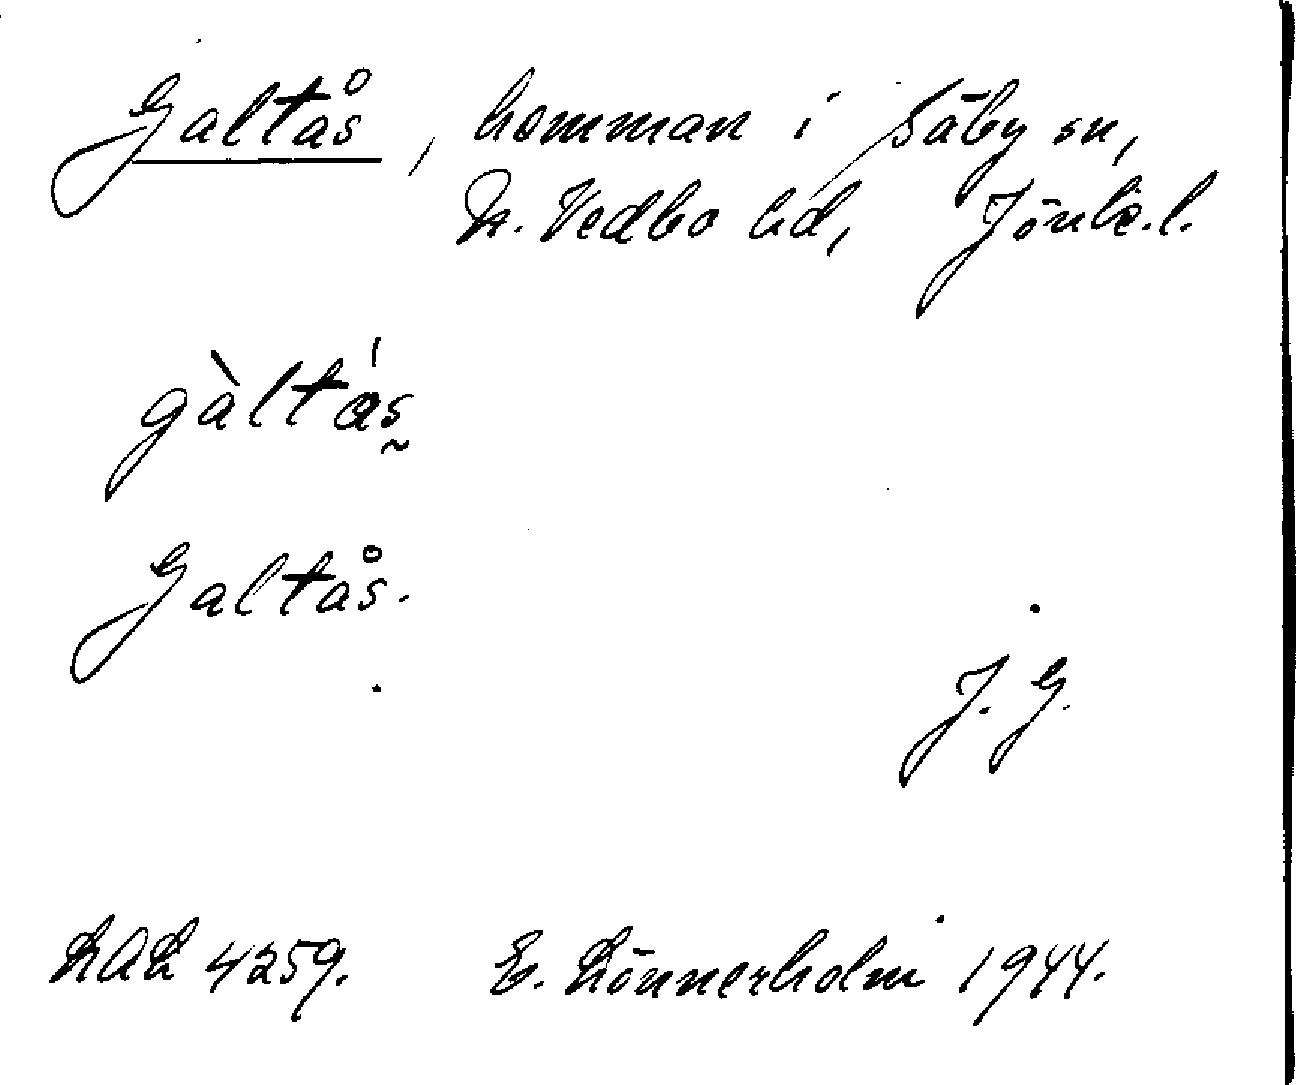 Galtås, hemman i Säby sn,
N. Vedbo hd, Jönk. l.
gàltás̰
Galtås.
J. G.
LAL 4259. E. Lönnerholm 1944.